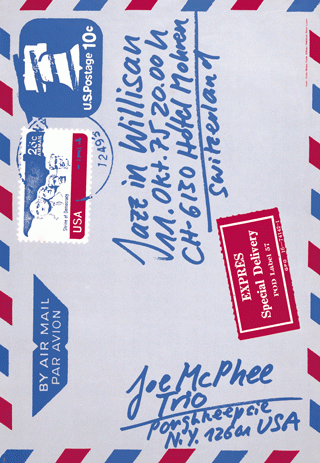 U.S.Postage 10c
26c
AIRMAIL
Shrine of Democracy
USA
12495
Jazz in Willisau
11. Okt. 75, 20.00 h
CH-6130 Hotel Mohren
Switzerland
EXPRÈS
Special Delivery
POD Label 57
BY AIR MAIL
PAR AVION
Joe McPhee
Trio
Poughkeepsie
N.Y. 12601 USA